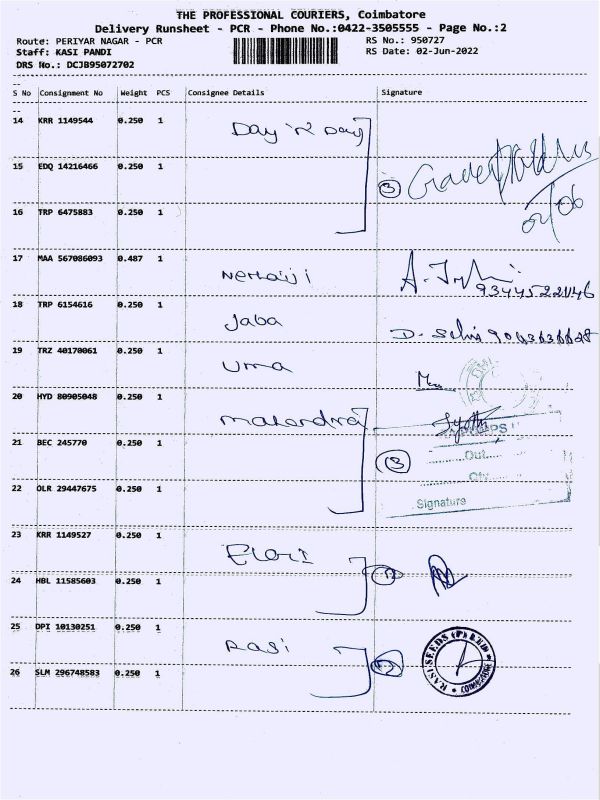 THE PROFESSIONAL COURIERS, Coimbatore
Delivery Runsheet - PCR - Phone No.:0422-3505555 - Page No.:2
Route: PERIYAR NAGAR - PCR
RS No.: 950727
Staff: KASI PANDI
RS Date: 02-Jun-2022
DRS No.: DCJB95072702
S No Consignment No Weight PCS Consignee Details Signature
14 KRR 1149544 0.250 1 Day 'n Day
15 EDQ 14216466 0.250 1 3
16 TRP 6475883 0.250 1 02/06
17 MAA 567086093 0.487 1 Nemaiji
9344522146
18 TRP 6154616 0.250 1 Jaba
19 TRZ 40170061 0.250 1 Uma
20 HYD 80905048 0.250 1 Mahendra
21 BEC 245770 0.250 1 3
Out
Qty
22 OLR 29447675 0.250 1
Signature
23 KRR 1149527 0.250 1 Elori
24 HBL 11585603 0.250 1
25 DPI 10130251 0.250 1 Rasi
RASI SEEDS (P) LTD
COIMBATORE
26 SLM 296748583 0.250 1